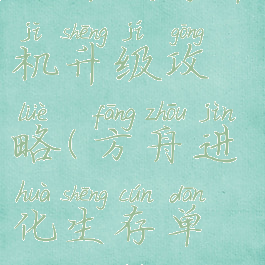 jī shēng jí gōng
机升级攻
lüè fāng zhōu jìn
略(方舟进
huà shēng cún dān
化生存单